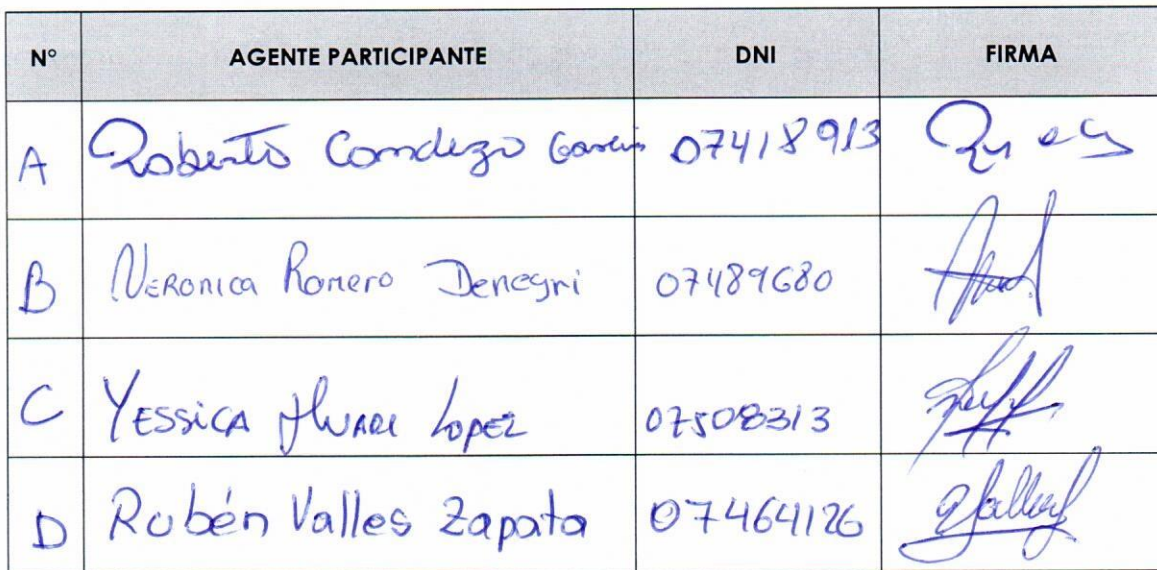 N° AGENTE PARTICIPANTE DNI FIRMA
A Roberto Condezo Garcia 07418913
B VERONICA Romero Denegri 07489680
C YESSICA LOPEZ 07508313
D Rubén Valles Zapata 07464126